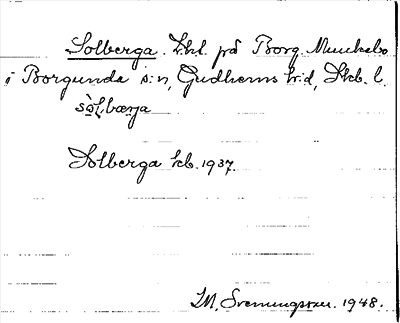 Solberga. Lht. på Borg Munkabo
i Borgunda s:n, Gudhems h:d, Skb. l.
sòlbærja
Solberga kb. 1937.
M. Svenungsson. 1948.